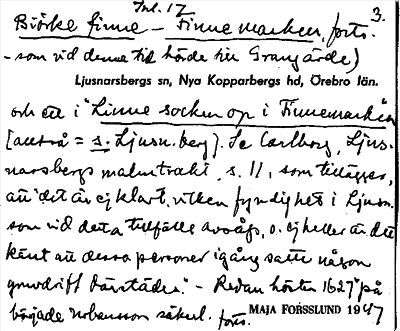 Inl. 17
3.
Björke finne - Finnemarken, forts.
- som vid denna tid hörde till Grangärde)
Ljusnarsbergs sn, Nya Kopparbergs hd, Örebro län.
och ett i "Linne socken op i Finnemarken
[alltså = s. Ljusn.berg]. Se Carlborg, Ljus-
narsbergs malmtrakt, s. 11, som tillägger,
att "det är ej klart, vilken fyndighet i Ljusn.
som vid detta tillfälle avsågs, o. ej heller är det
känt att dessa personer igång satte någon
gruvdrift därstädes." - Redan hösten 1627 på
började
forts.
MAJA FORSSLUND 1947